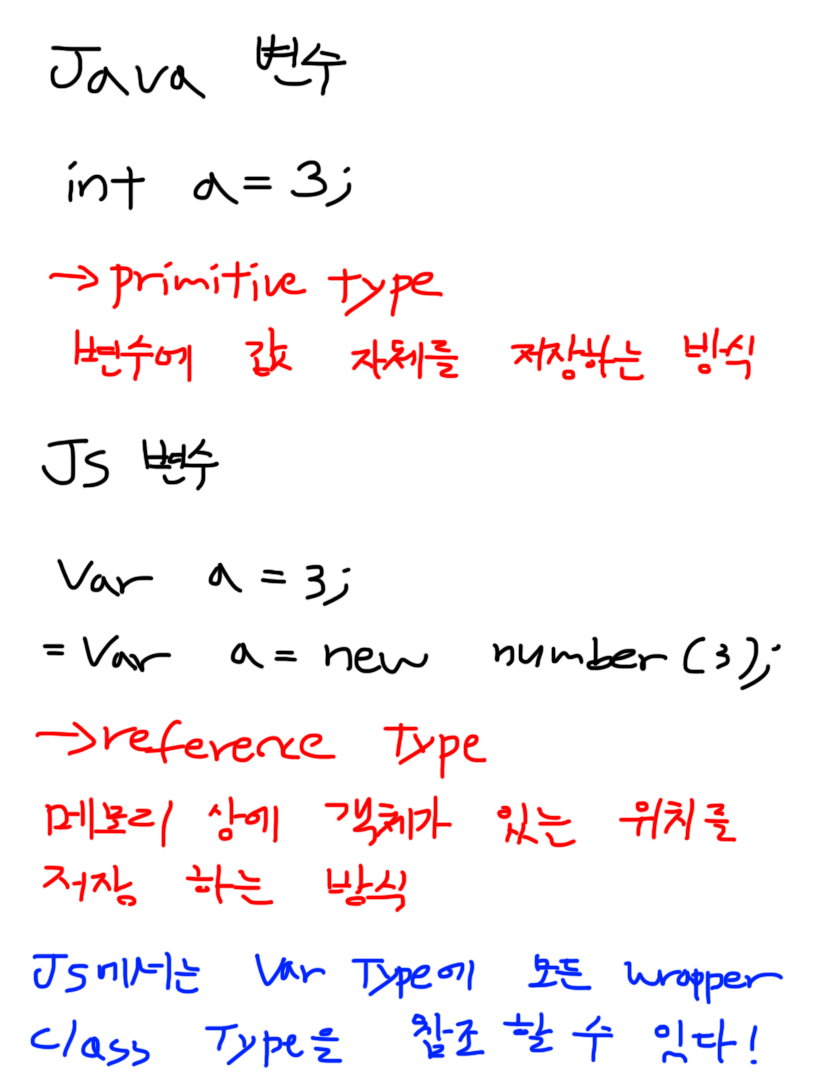 Java 변수
int a = 3;
→ primitive type
변수에 값 자체를 저장하는 방식
JS 변수
Var a = 3;
= Var a = new number(3);
→ reference Type
메모리 상에 객체가 있는 위치를
저장 하는 방식
JS에서는 Var Type에 모든 wrapper
class Type을 참조 할 수 있다!